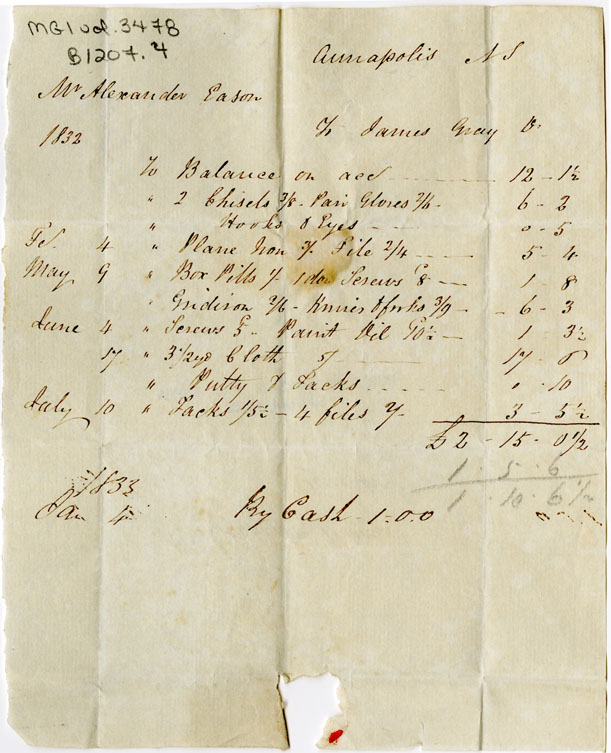 MG1 vol. 3478
B1207.4
Annapolis N S
Mr Alexander Eason
1832 To James Gray Dr
To Balance on acct 12 - 1½
" 2 Chisels 3/8 - Pair Gloves 2/6 6 - 2
" Hooks & Eyes 0 - 5
4 " Plane Iron 3/ File 2/4 5 - 4
May 9 " Box Pills 1/ 1 doz Screws 8 1 - 8
" Gridiron 2/6 - Knives & forks 3/9 6 - 3
June 4 " Screws 5 - Paint Oil 10½ 1 - 3½
17 " 3 1/2 yd Cloth 5/ 17 - 0
" Putty & Tacks " - 10
July 10 " Tacks 1/5½ - 4 files 2/ 3 - 5½
£2 - 15 - 0 1/2
1 . 5 . 6
1 . 10 . 6½
1833
Jan 4 By Cash 1.0.0